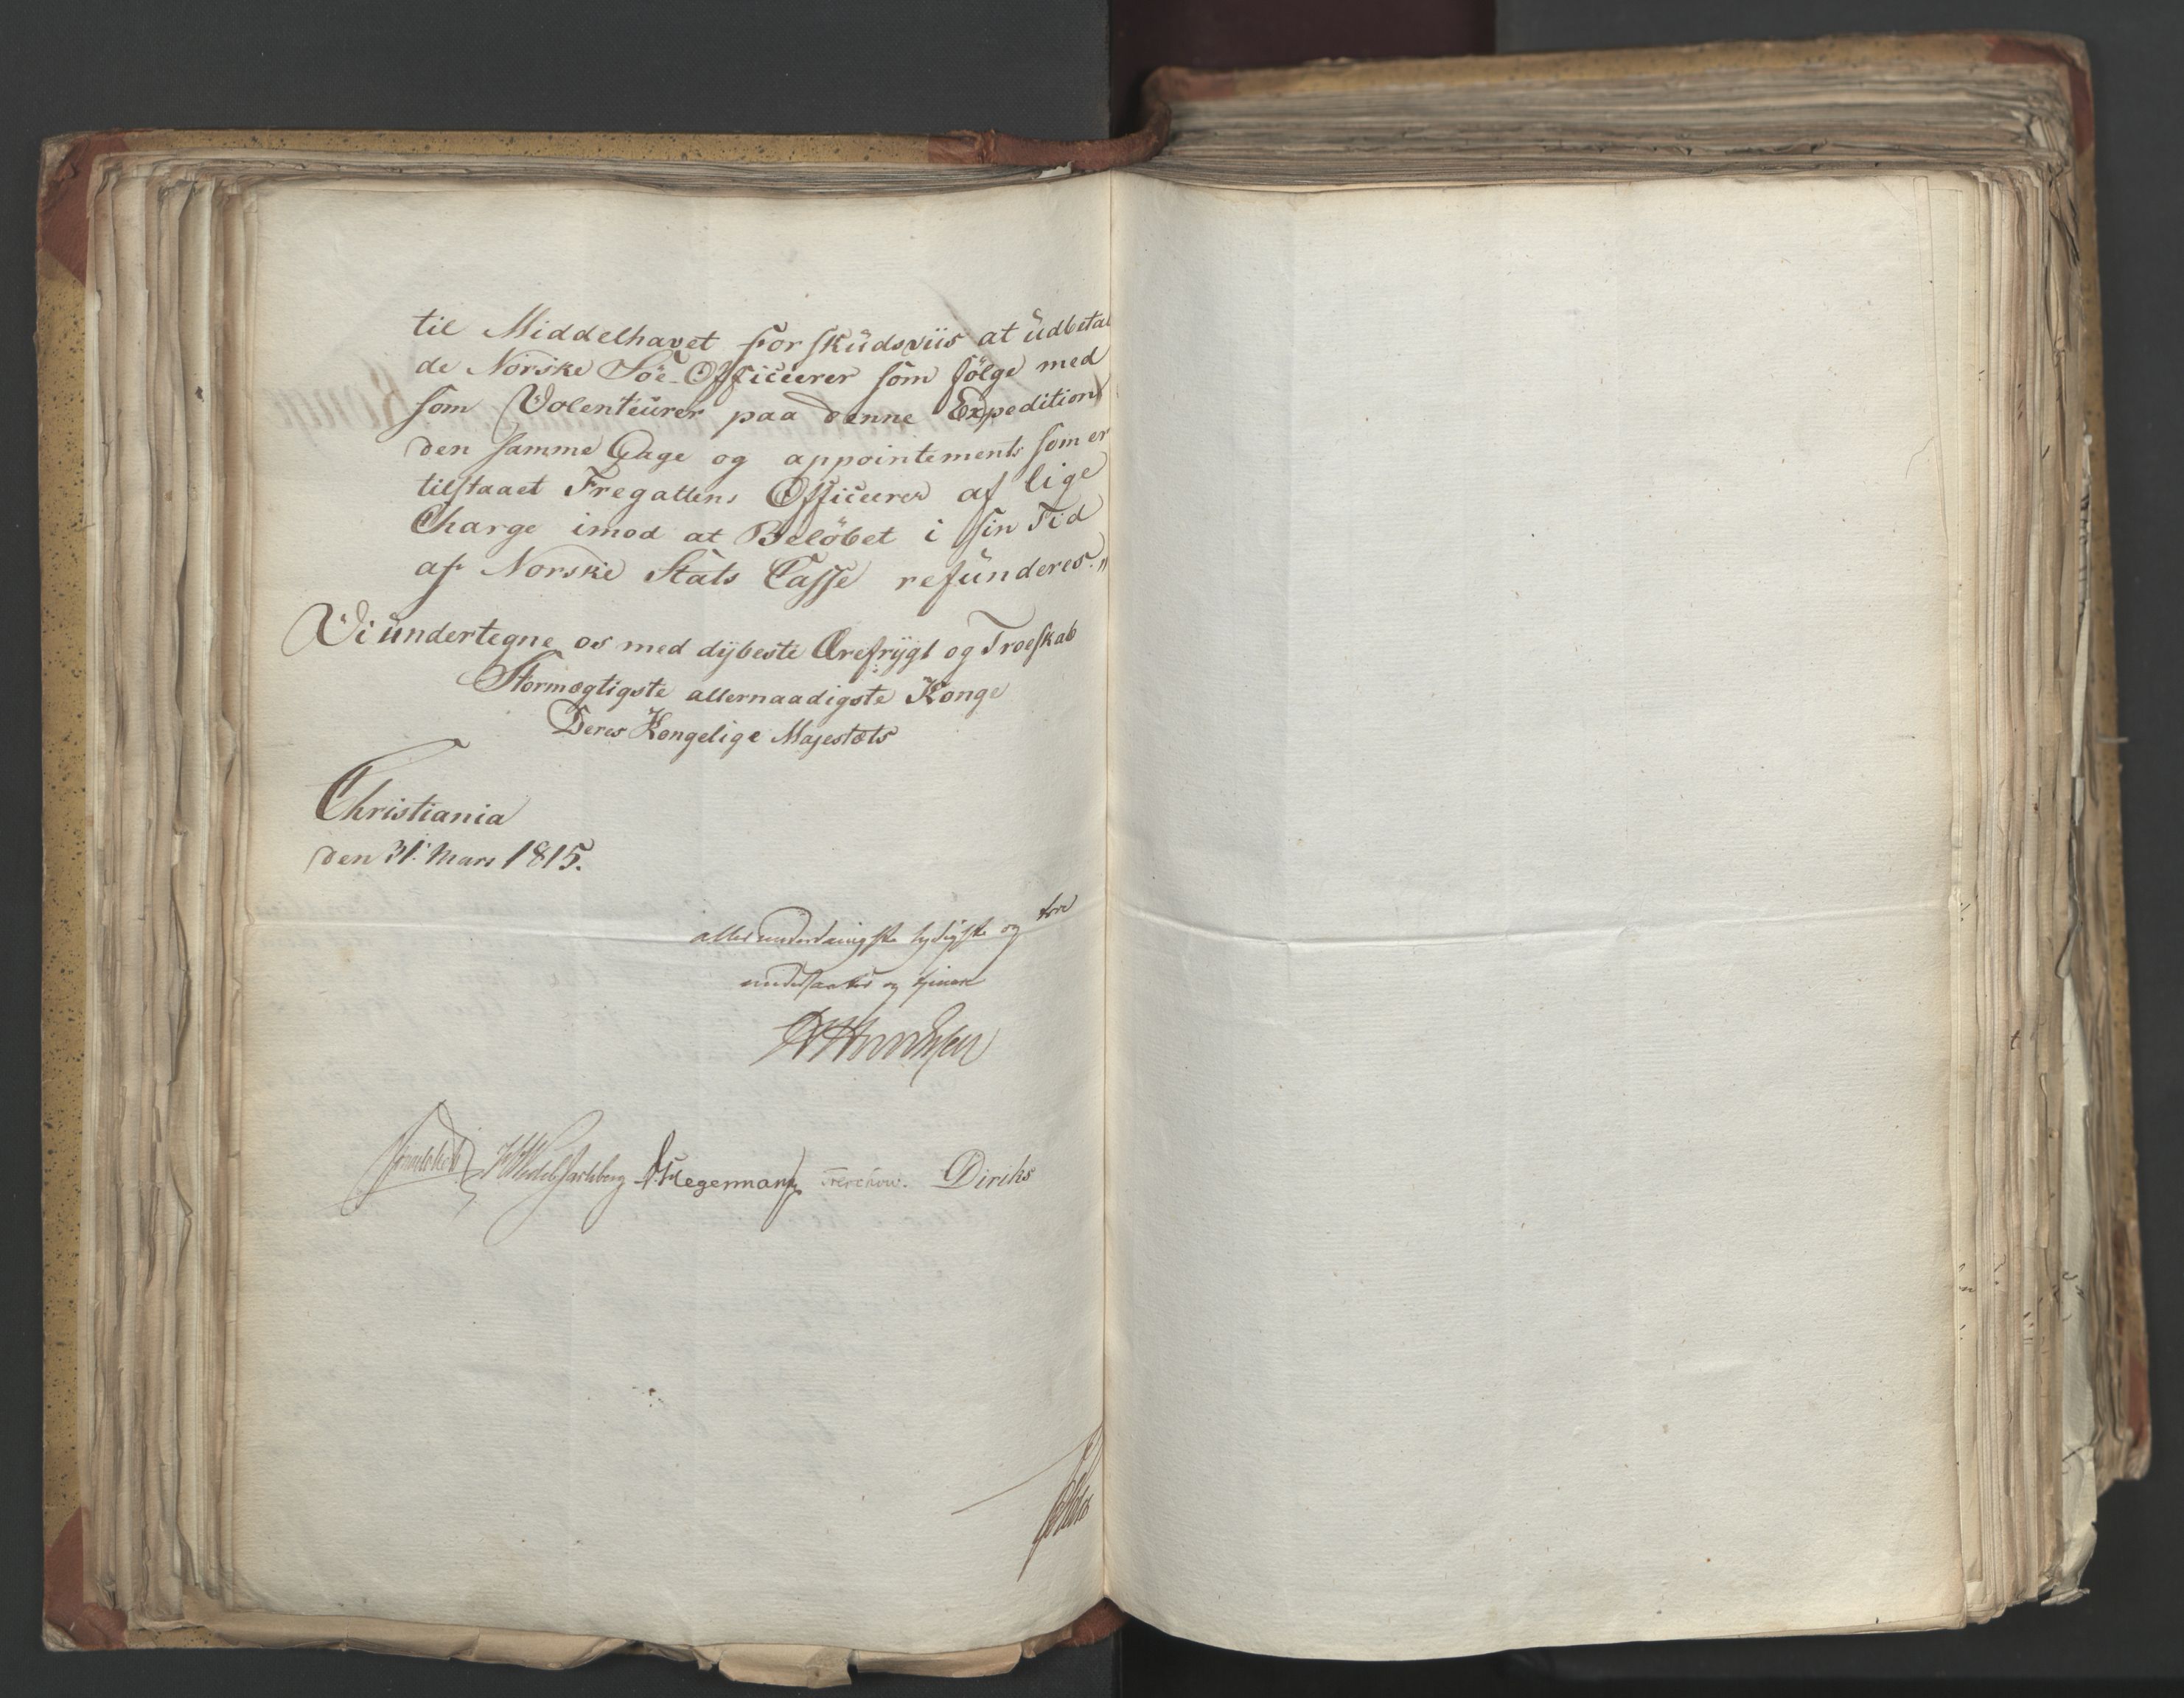 til Middelhavet forskudsviis at udbetal
de Norske Söe-Officierer som fölge med
som Volenteurer paa denne Expedition
den samme Gage og appointements som er
tilstaaet Fregattens Officerer af lige
Charge imod at Belöbet i sin Tid
af Norske Stats Casse refunderes."
Vi undertegne os med dybeste Ærefrygt og Troeskab
Stormægtigste allernaadigste Konge
Deres Kongelige Majestæts
Christiania
den 31. Mars 1815.
allerunderdanigste lydigste og troe
undersaatter og tjenere
Sommerhielm HWedelJarlsberg D. Hegermann Treschow. Diriks